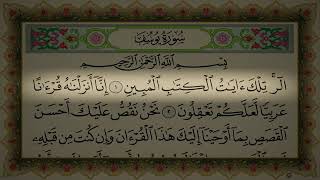 سورة يوسف
بسم الله الرحمن الرحيم
الٓر تلك ءايٰت الكتٰب المبين ١ إنا أنزلنٰه قرءٰنًا
عربيًا لعلكم تعقلون ٢ نحن نقص عليك أحسن
القصص بما أوحينا إليك هٰذا القرءان وإن كنت من قبله